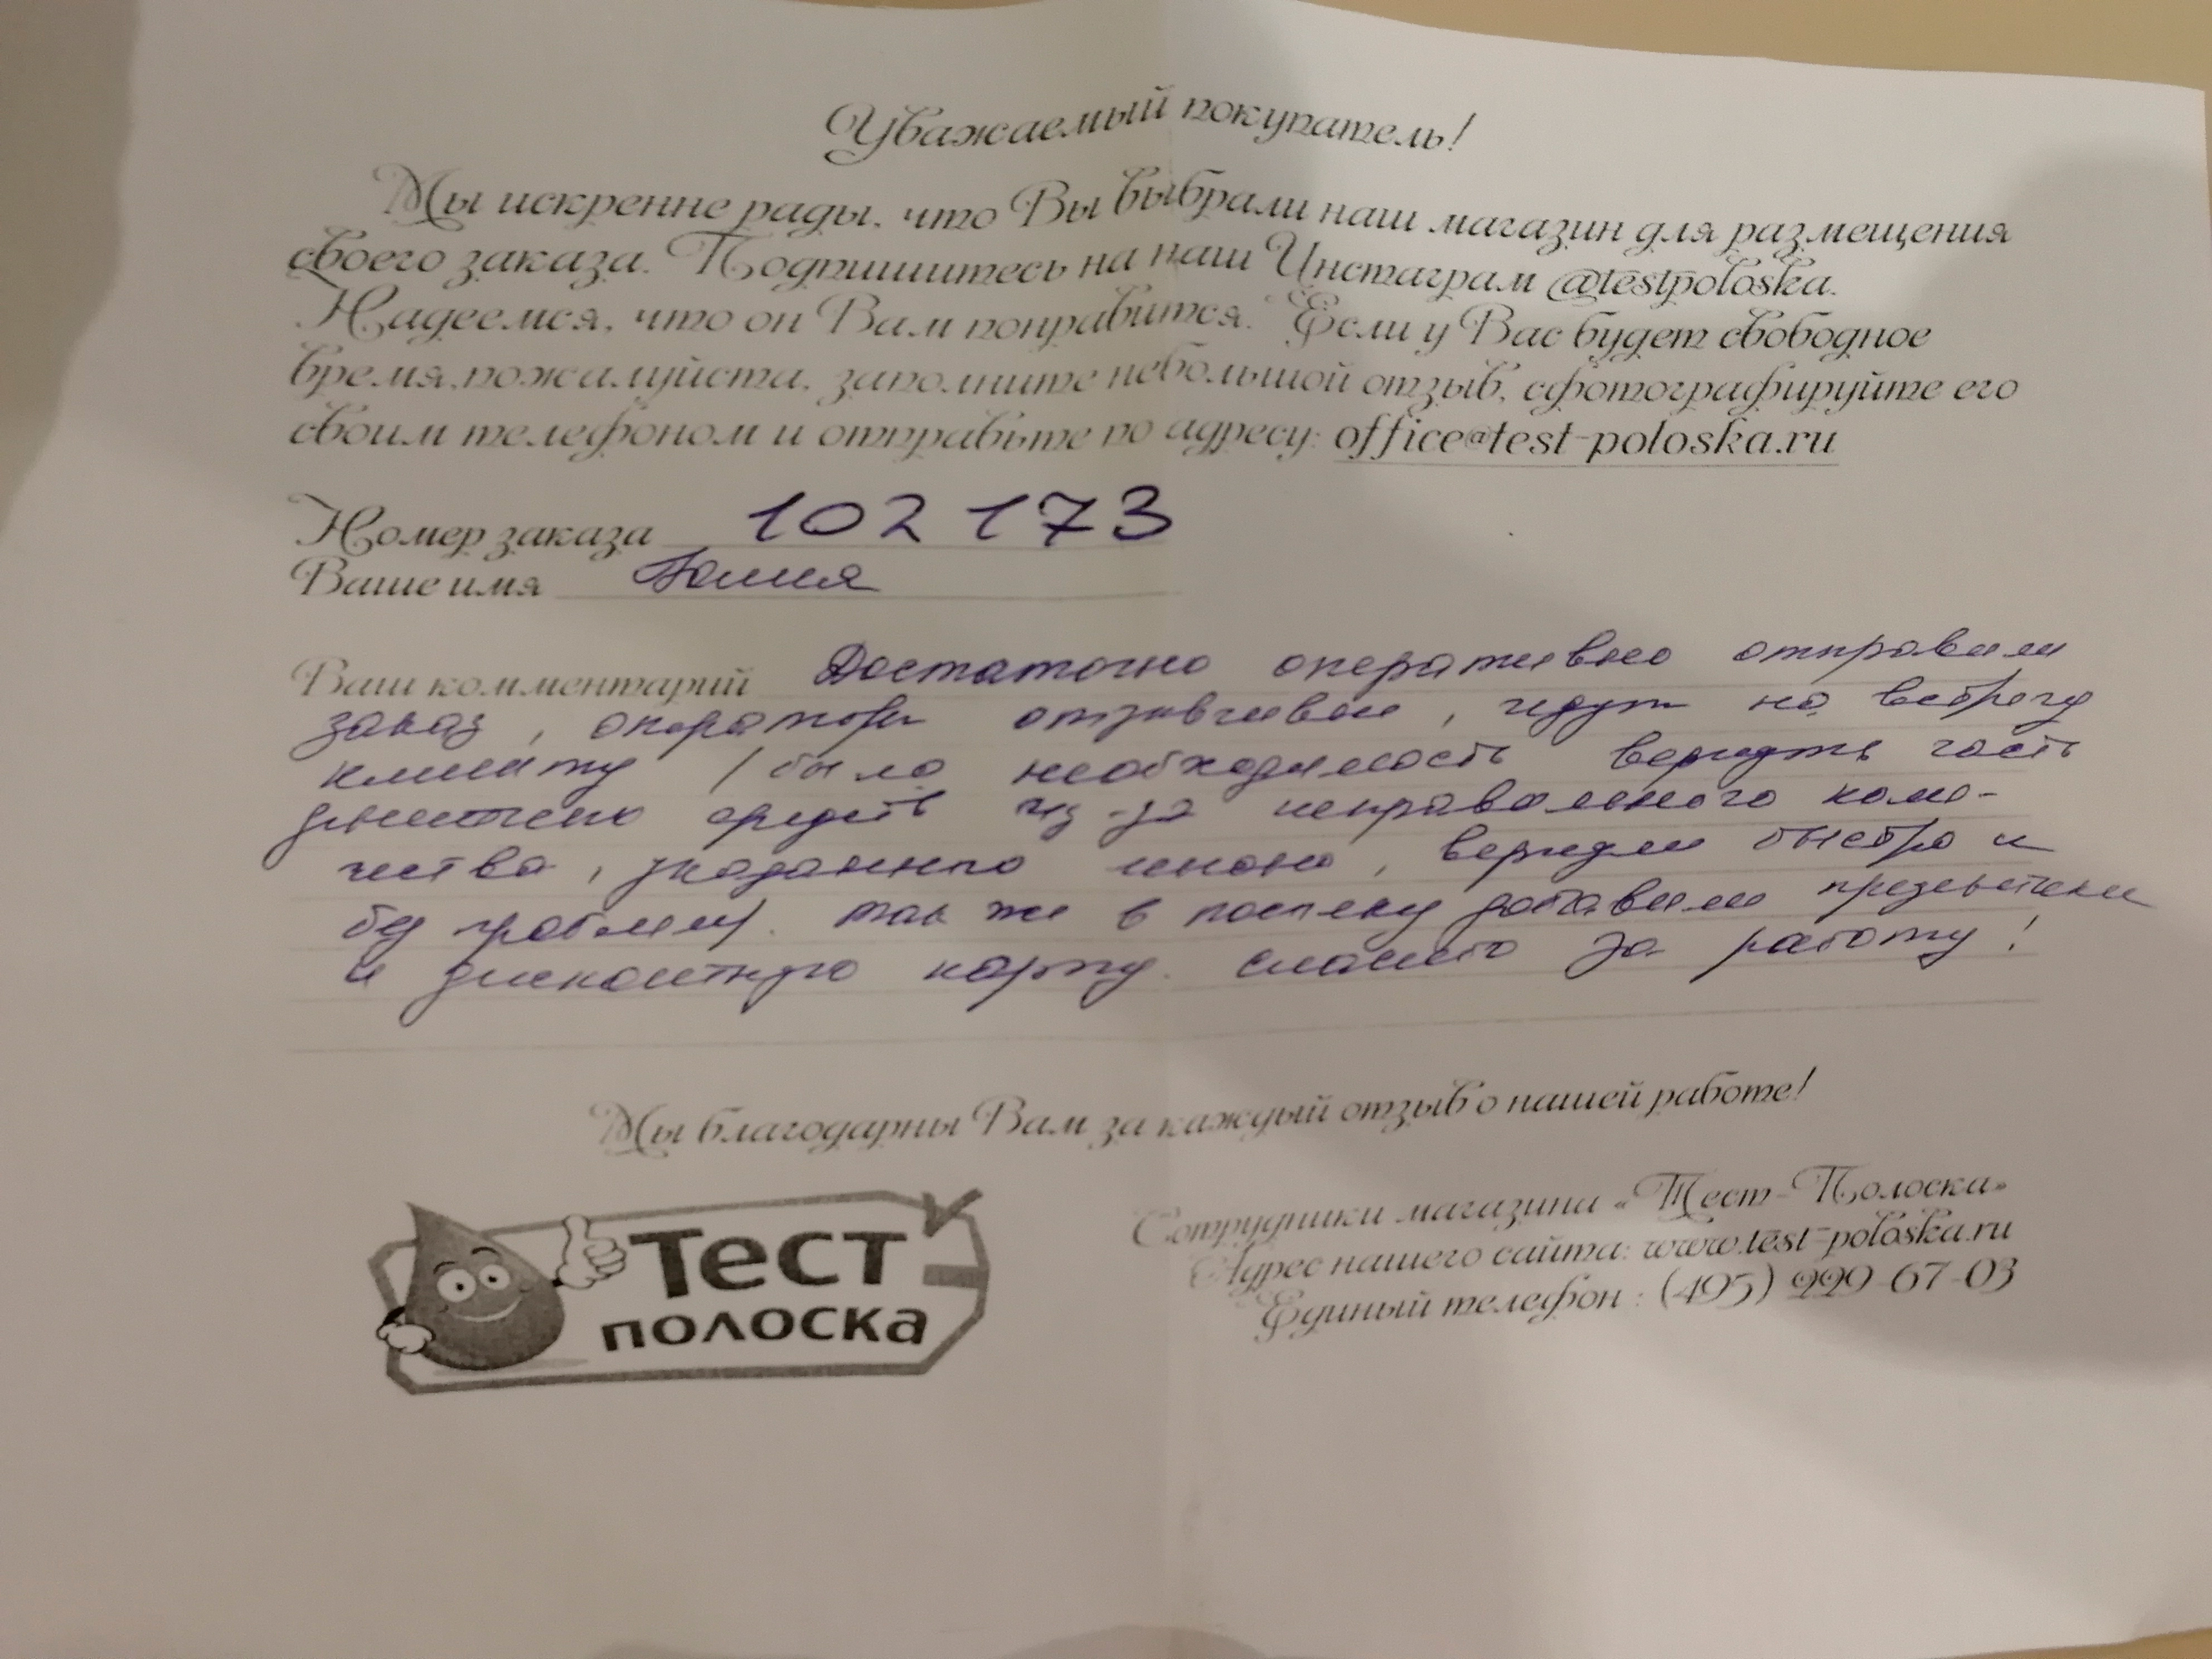 Уважаемый покупатель!
Мы искренне рады, что Вы выбрали наш магазин для размещения
своего заказа. Подпишитесь на наш Инстаграм @testpoloska.
Надеемся, что он Вам понравится. Если у Вас будет свободное
время, пожалуйста, заполните небольшой отзыв, сфотографируйте его
своим телефоном и отправьте по адресу: office@test-poloska.ru
Номер заказа 102 173
Ваше имя Юлия
Ваш комментарий Достаточно оперативно отправили
заказ, операторы отзывчивые, идут на встречу
клиенту / было необходимость вернуть часть
денежных средств из-за неправильного коли-
чества, указанного мною, вернули быстро и
без проблем). так же в посылку добавили презентики
и дисконтную карту. спасибо за работу!
Мы благодарны Вам за каждый отзыв о нашей работе!
Тест
полоска
Сотрудники магазина «Тест-Полоска»
Адрес нашего сайта: www.test-poloska.ru
Единый телефон : (495) 229-67-03